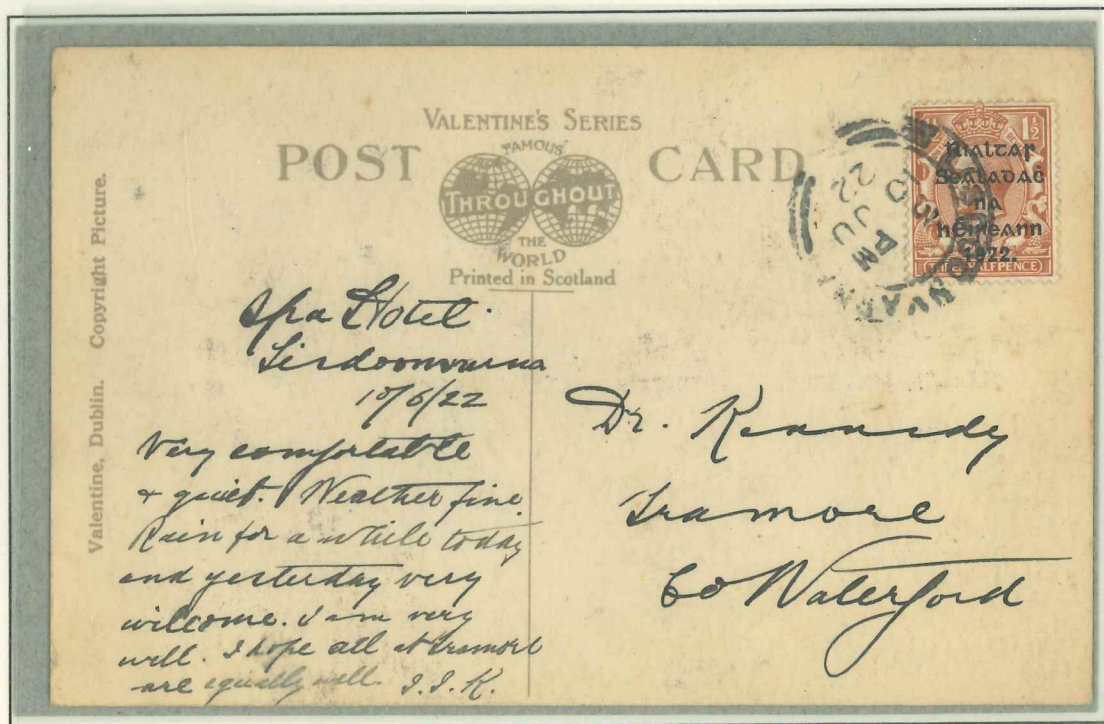 VALENTINE'S SERIES
POST CARD
FAMOUS
THROUGHOUT
THE
WORLD
Printed in Scotland
Valentine, Dublin. Copyright Picture.
1½
Rialtas
Sealadaċ
na
hÉireann
1922.
HALFPENCE
LISDOONVARNA
AM
10 JU
22
Spa Hotel
Lisdoonvarna
10/6/22
Very comfortable
& quiet. Weather fine.
Rain for a while today
and yesterday very
welcome. I am very
well. I hope all at Tramore
are equally well. J.J.K.
Dr. Kennedy
Tramore
Co Waterford